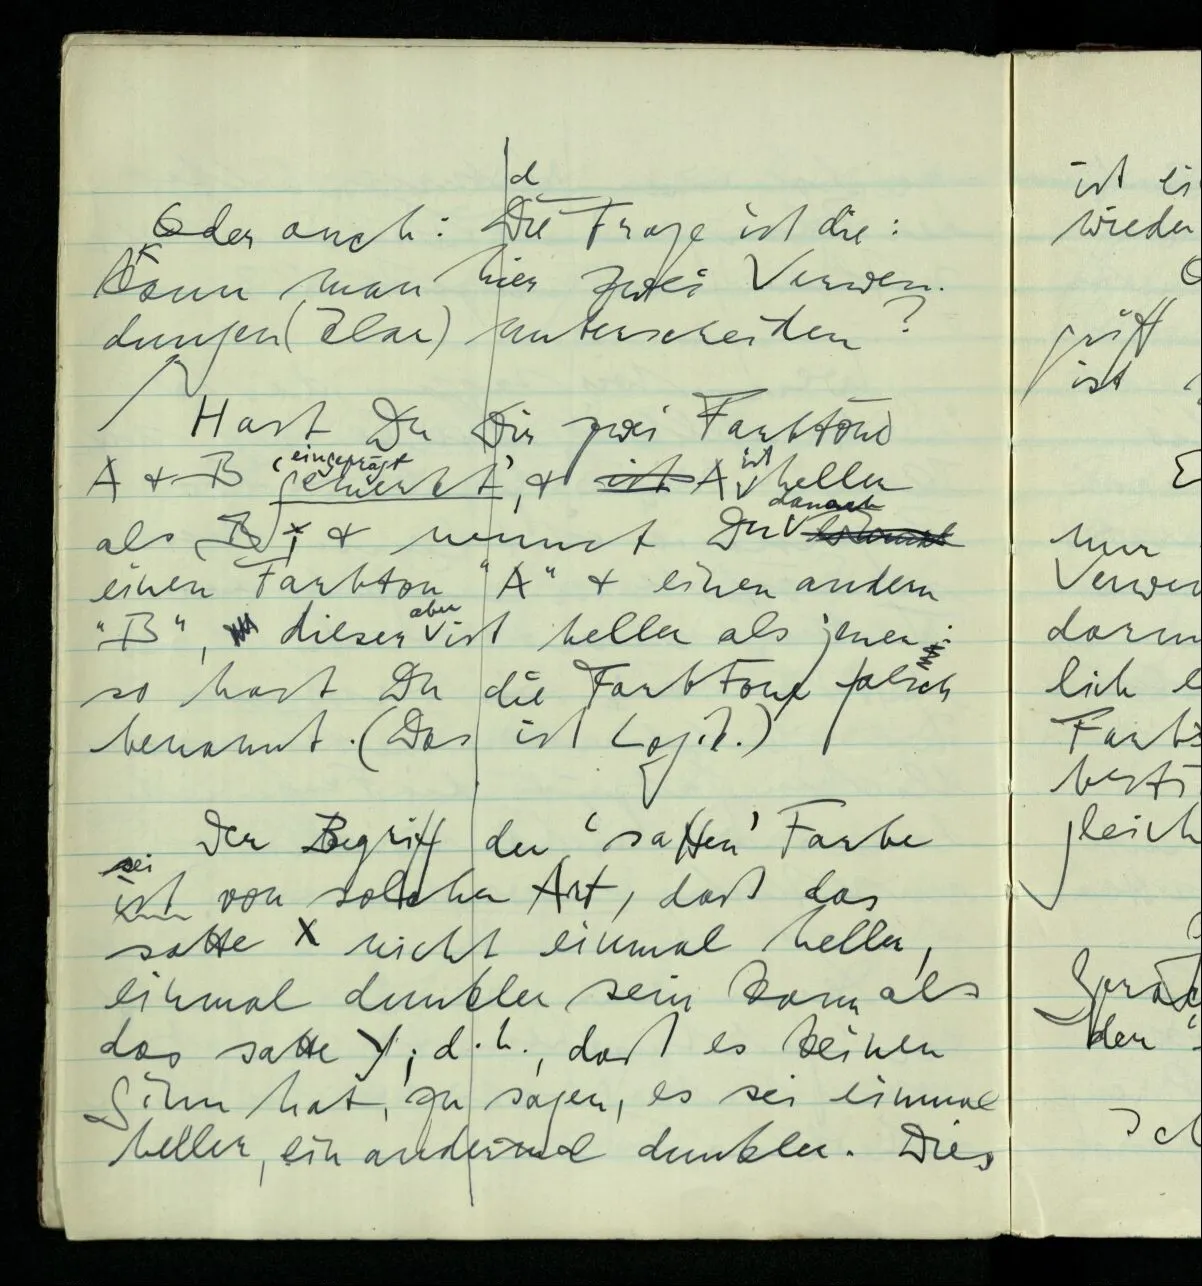 d
Oder auch: Die Frage ist die:
Kann man hier zwei Verwen-
dungen (klar) unterscheiden?
Hast Du Dir zwei Farbtöne
eingeprägt ist
A & B ‘gemerkt’, & ist A heller
danach
als B, & nennst Du
einen Farbton “A” & einen andern
aber
“B”, dieser ist heller als jener:
so hast Du die Farbtöne falsch
benannt. (Das ist Logik.)
Der Begriff der ‘satten’ Farbe
sei
ist von solcher Art, daß das
satte X nicht einmal heller,
einmal dunkler sein kann als
das satte Y; d.h., daß es keinen
Sinn hat, zu sagen, es sei einmal
heller, ein andermal dunkler. Dies
ist ei
wieder
griff
ist
nur
Verwen
darin
lich e
Farb
besti
gleich
der
Ich